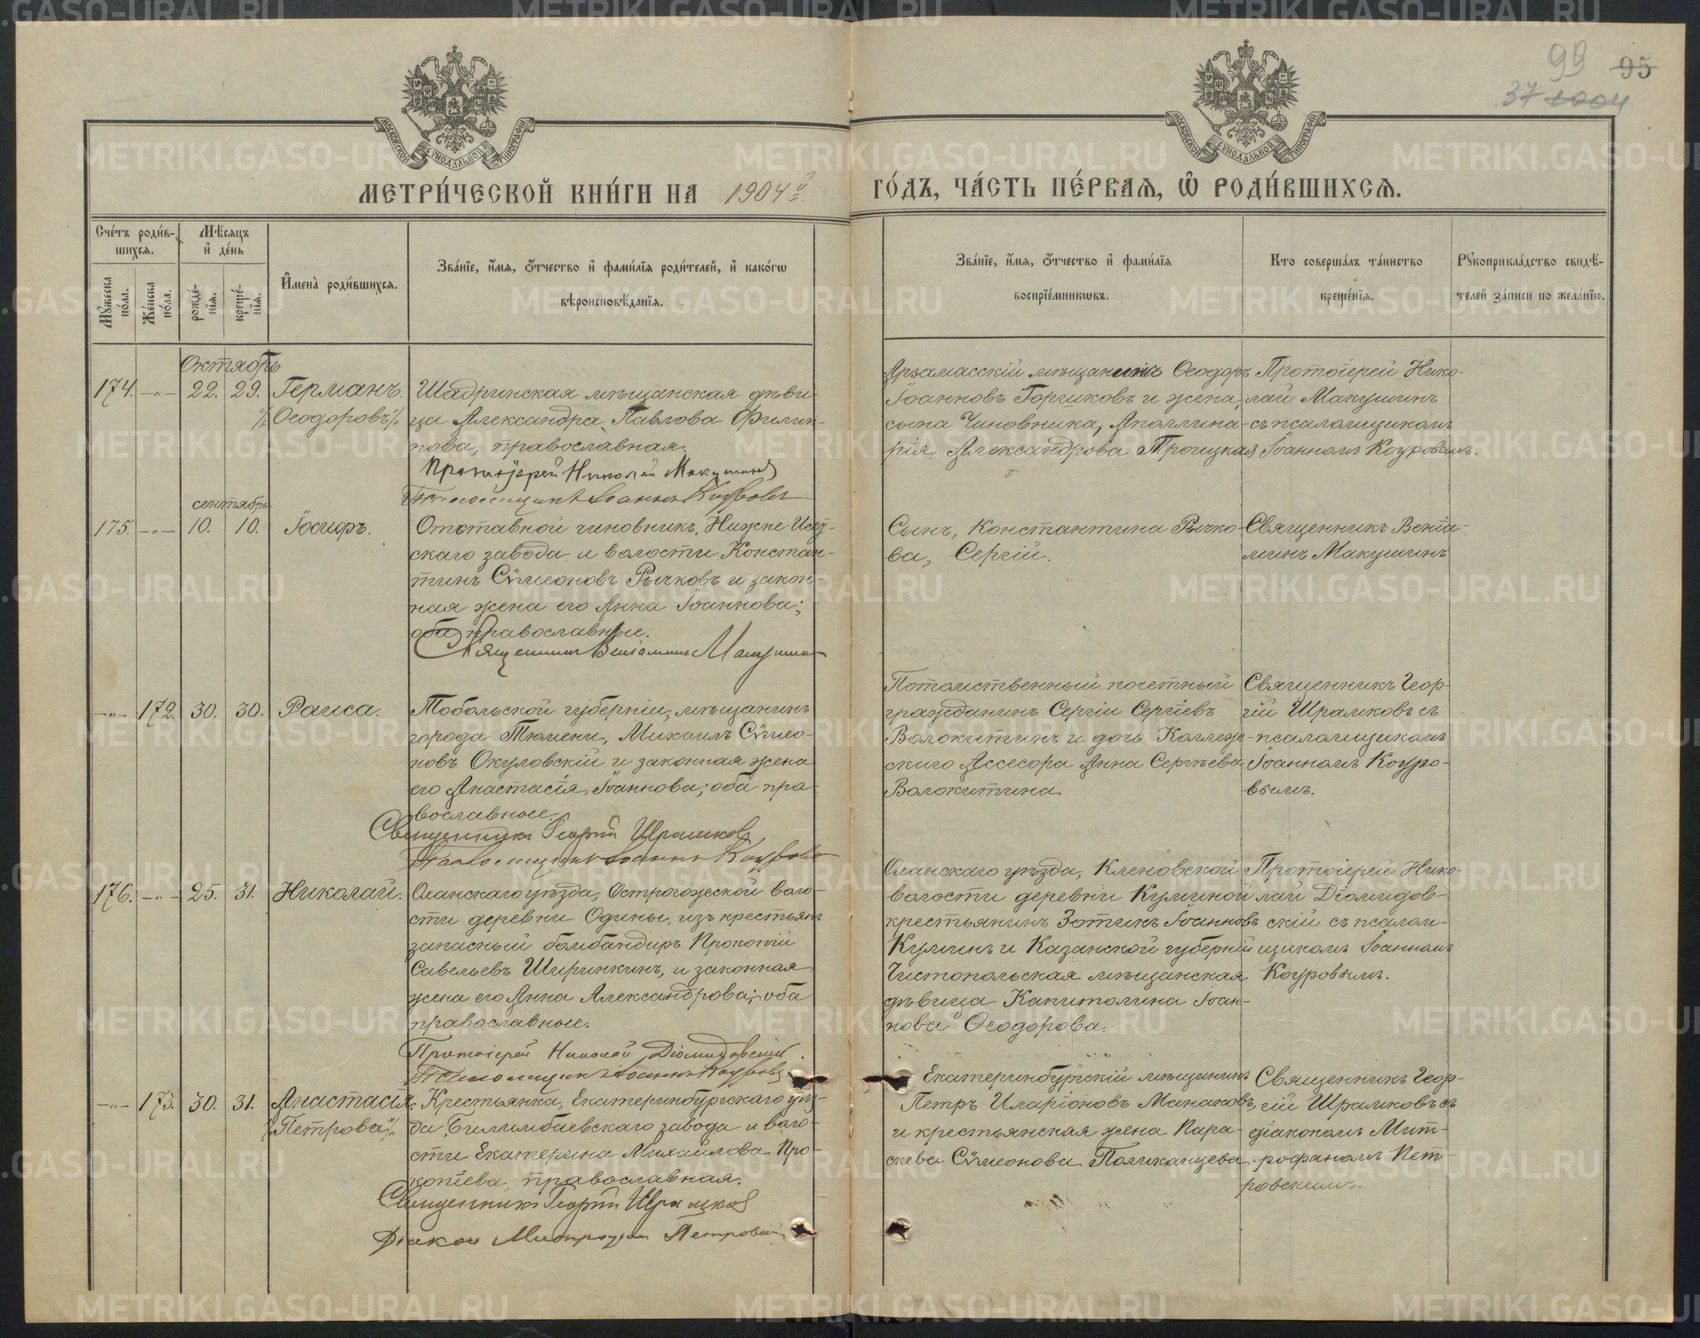 99 95
37 1904
МОСКОВСКОЙ СѴНОДАЛЬНОЙ ТИПОГРАФІИ
МОСКОВСКОЙ СѴНОДАЛЬНОЙ ТИПОГРАФІИ
МЕТРИ́ЧЕСКОЙ КНИ́ГИ НА 1904й ГО́ДЪ, ЧА́СТЬ ПЕ́РВАЯ, Ѡ РОДИ́ВШИХСЯ.
Сче́тъ роди́в-
шихся.
Мѣ́сяцъ
и҆ де́нь
Мꙋ́жеска
по́ла.
Же́нска
по́ла.
рожде́-
нїѧ.
креще́-
нїѧ.
И҆мена̀ роди́вшихся.
Зва́нїе, и҆́мѧ, ѻ҆́тчество и҆ фами́лїѧ роди́телей, и҆ како́гѡ
вѣроисповѣ́данїѧ.
Зва́нїе, и҆́мѧ, ѻ҆́тчество и҆ фами́лїѧ
воспрїе́мникѡвъ.
Кто соверша́лъ та́инство
креще́нїѧ.
Рꙋкоприкла́дство свидѣ́-
телей за́писи по жела́нїю.
Октябрь
174. -"- 22. 29. Германъ.
/Ѳеодоровъ/
Шадринская мѣщанская дѣви-
ца Александра Павлова Филип-
пова, православная.
Протоіерей Николай Макушинъ
Псаломщикъ Іоаннъ Коуровъ
Арзамасскій мѣщанинъ Ѳеодоръ
Іоанновъ Горшковъ и жена
сына Чиновника, Аполлина-
рія Александрова Троицкая
Протоіерей Нико-
лай Макушинъ
съ псаломщикомъ
Іоанномъ Коуровымъ.
сентябрь
175. -"- 10. 10. Іосифъ.
Отставной чиновникъ, Нижне-Исет-
скаго завода и волости Констан-
тинъ Сѵмеоновъ Рычковъ и закон-
ная жена его Анна Іоаннова;
оба православные.
Священникъ Веніаминъ Макушинъ
Сынъ, Константина Рычко-
ва, Сергій.
Священникъ Веніа-
минъ Макушинъ
-"- 172. 30. 30. Раиса.
Тобольской губерніи, мѣщанинъ
города Тюмени, Михаилъ Сѵмео-
новъ Окуловскій и законная жена
его Анастасія Іоаннова; оба пра-
вославные.
Священникъ Георгій Шрамковъ
Псаломщикъ Іоаннъ Коуровъ
Потомственный почетный
гражданинъ Сергій Сергіевъ
Волокитинъ и дочь Коллеж-
скаго Ассесора Анна Сергѣева
Волокитина
Священникъ Геор-
гій Шрамковъ съ
псаломщикомъ
Іоанномъ Коуро-
вымъ.
176. -"- 25. 31. Николай.
Оханскаго уѣзда, Острожской воло-
сти деревни Одины, изъ крестьянъ
запасный бомбандиръ Прокопій
Савельевъ Ширинкинъ, и законная
жена его Анна Александрова; оба
православные.
Протоіерей Николай Діомидовскій.
Псаломщикъ Іоаннъ Коуровъ
Оханскаго уѣзда, Кленовской
волости деревни Кулиной
крестьянинъ Зотикъ Іоанновъ
Кулинъ и Казанской губерніи
Чистопольская мѣщанская
дѣвица Капитолина Іоан-
нова Ѳеодорова.
Протоіерей Нико-
лай Діомидов-
скій съ псалом-
щикомъ Іоанномъ
Коуровымъ.
-"- 173. 30. 31. Анастасія.
/Петрова/
Крестьянка, Екатеринбургскаго уѣз-
да, Билимбаевскаго завода и воло-
сти Екатерина Михаилова Про-
копіева, православная.
Священникъ Георгій Шрамковъ
Діаконъ Митрофанъ Петровскій
Екатеринбургскій мѣщанинъ
Петръ Иларіоновъ Манаковъ,
и крестьянская жена Пара-
скева Сѵмеонова Поликанцева
Священникъ Геор-
гій Шрамковъ съ
діакономъ Мит-
рофаномъ Пет-
ровскимъ.